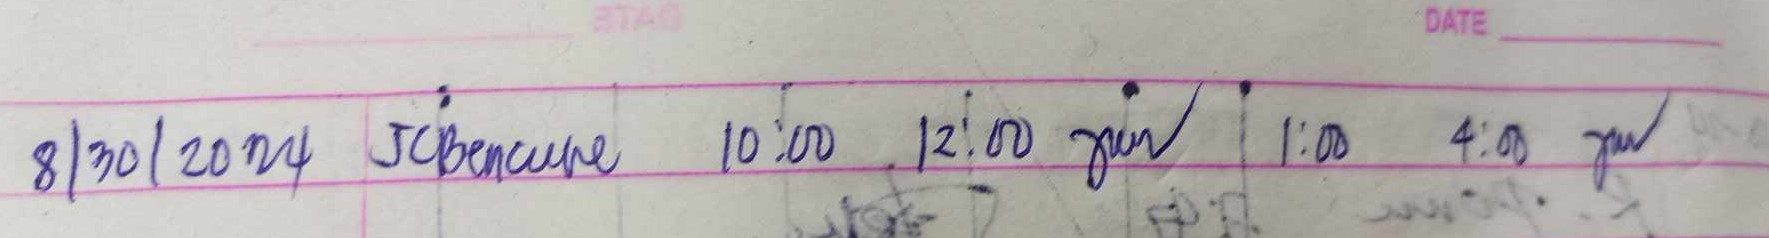 DATE
8/30/2024 JCBencure 10:00 12:00 1:00 4:00